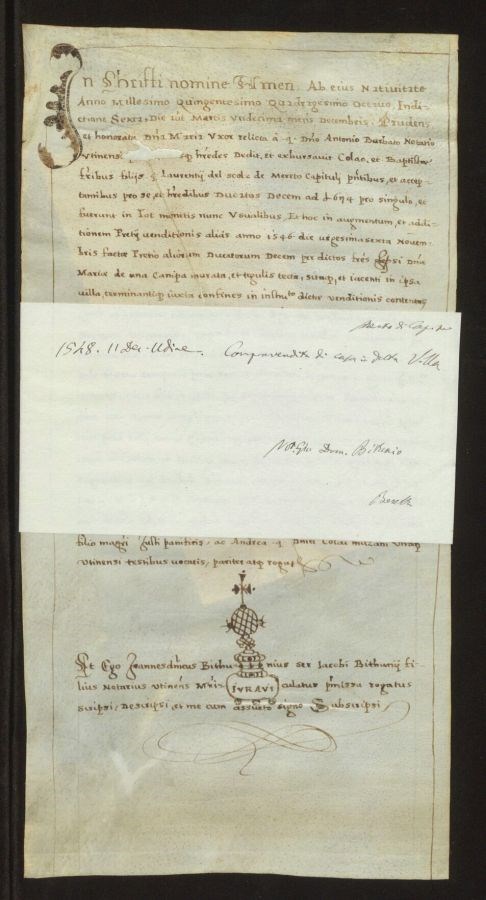 In Christi nomine Amen. Ab eius Nativitate
Anno Millesimo Quingentesimo Quadragesimo Octavo, Indi-
ctione Sexta, Die vō Martis Undecima mens Decembris. Prudens
et honorata Dna Maria Uxor relicta á q. Dno Antonio Barbato Notario
Utinensi hredes Dedit, et exbursavit Colao, et Baptistæ
fribus filijs q Laurentij del scolc de Mereto Capituli pntibus, et accep-
tantibus pro se, et hredibus Ducatos Decem ad £ 6 s 4 pro singulo, et
fuerunt in Tot monetis nunc Usualibus. Et hoc in augmentum, et addi-
tionem Pretij venditionis aliàs anno 1546 die vigesimasexta Novem-
bris factæ Pretio aliorum Ducatorum Decem per dictos frēs Ipsi Dnæ
Mariæ de una Canipa murata, et tegulis tecta, sitaq, et iacenti in ipsa
villa terminantiq iuxta confines in instruto dictæ venditionis contentos
1548. 11 Dec. Udine. Compravendita di casa in detta Villa
Notajo Dom. Bitinio
filio magri Julti panitinis, ac Andrea q. Dnici Colai
Utinensi testibus vocatis, pariter atq rogatis
Et Ego Joannesdnicus Bithu nius ser Iacobi Bithunij fi-
lius Notarius Utinens Mri culatus pmissa rogatus
IURAVI
scripsi, Descripsi, et me cum assueto signo Subscripsi